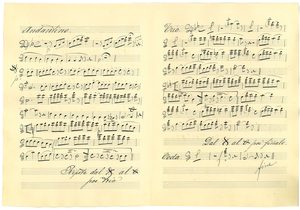 Andantino
Repite dal 𝄋 al 𝄌
poi Trio
Trio
Dal 𝄋 al 𝄌 poi finale
Coda
fine